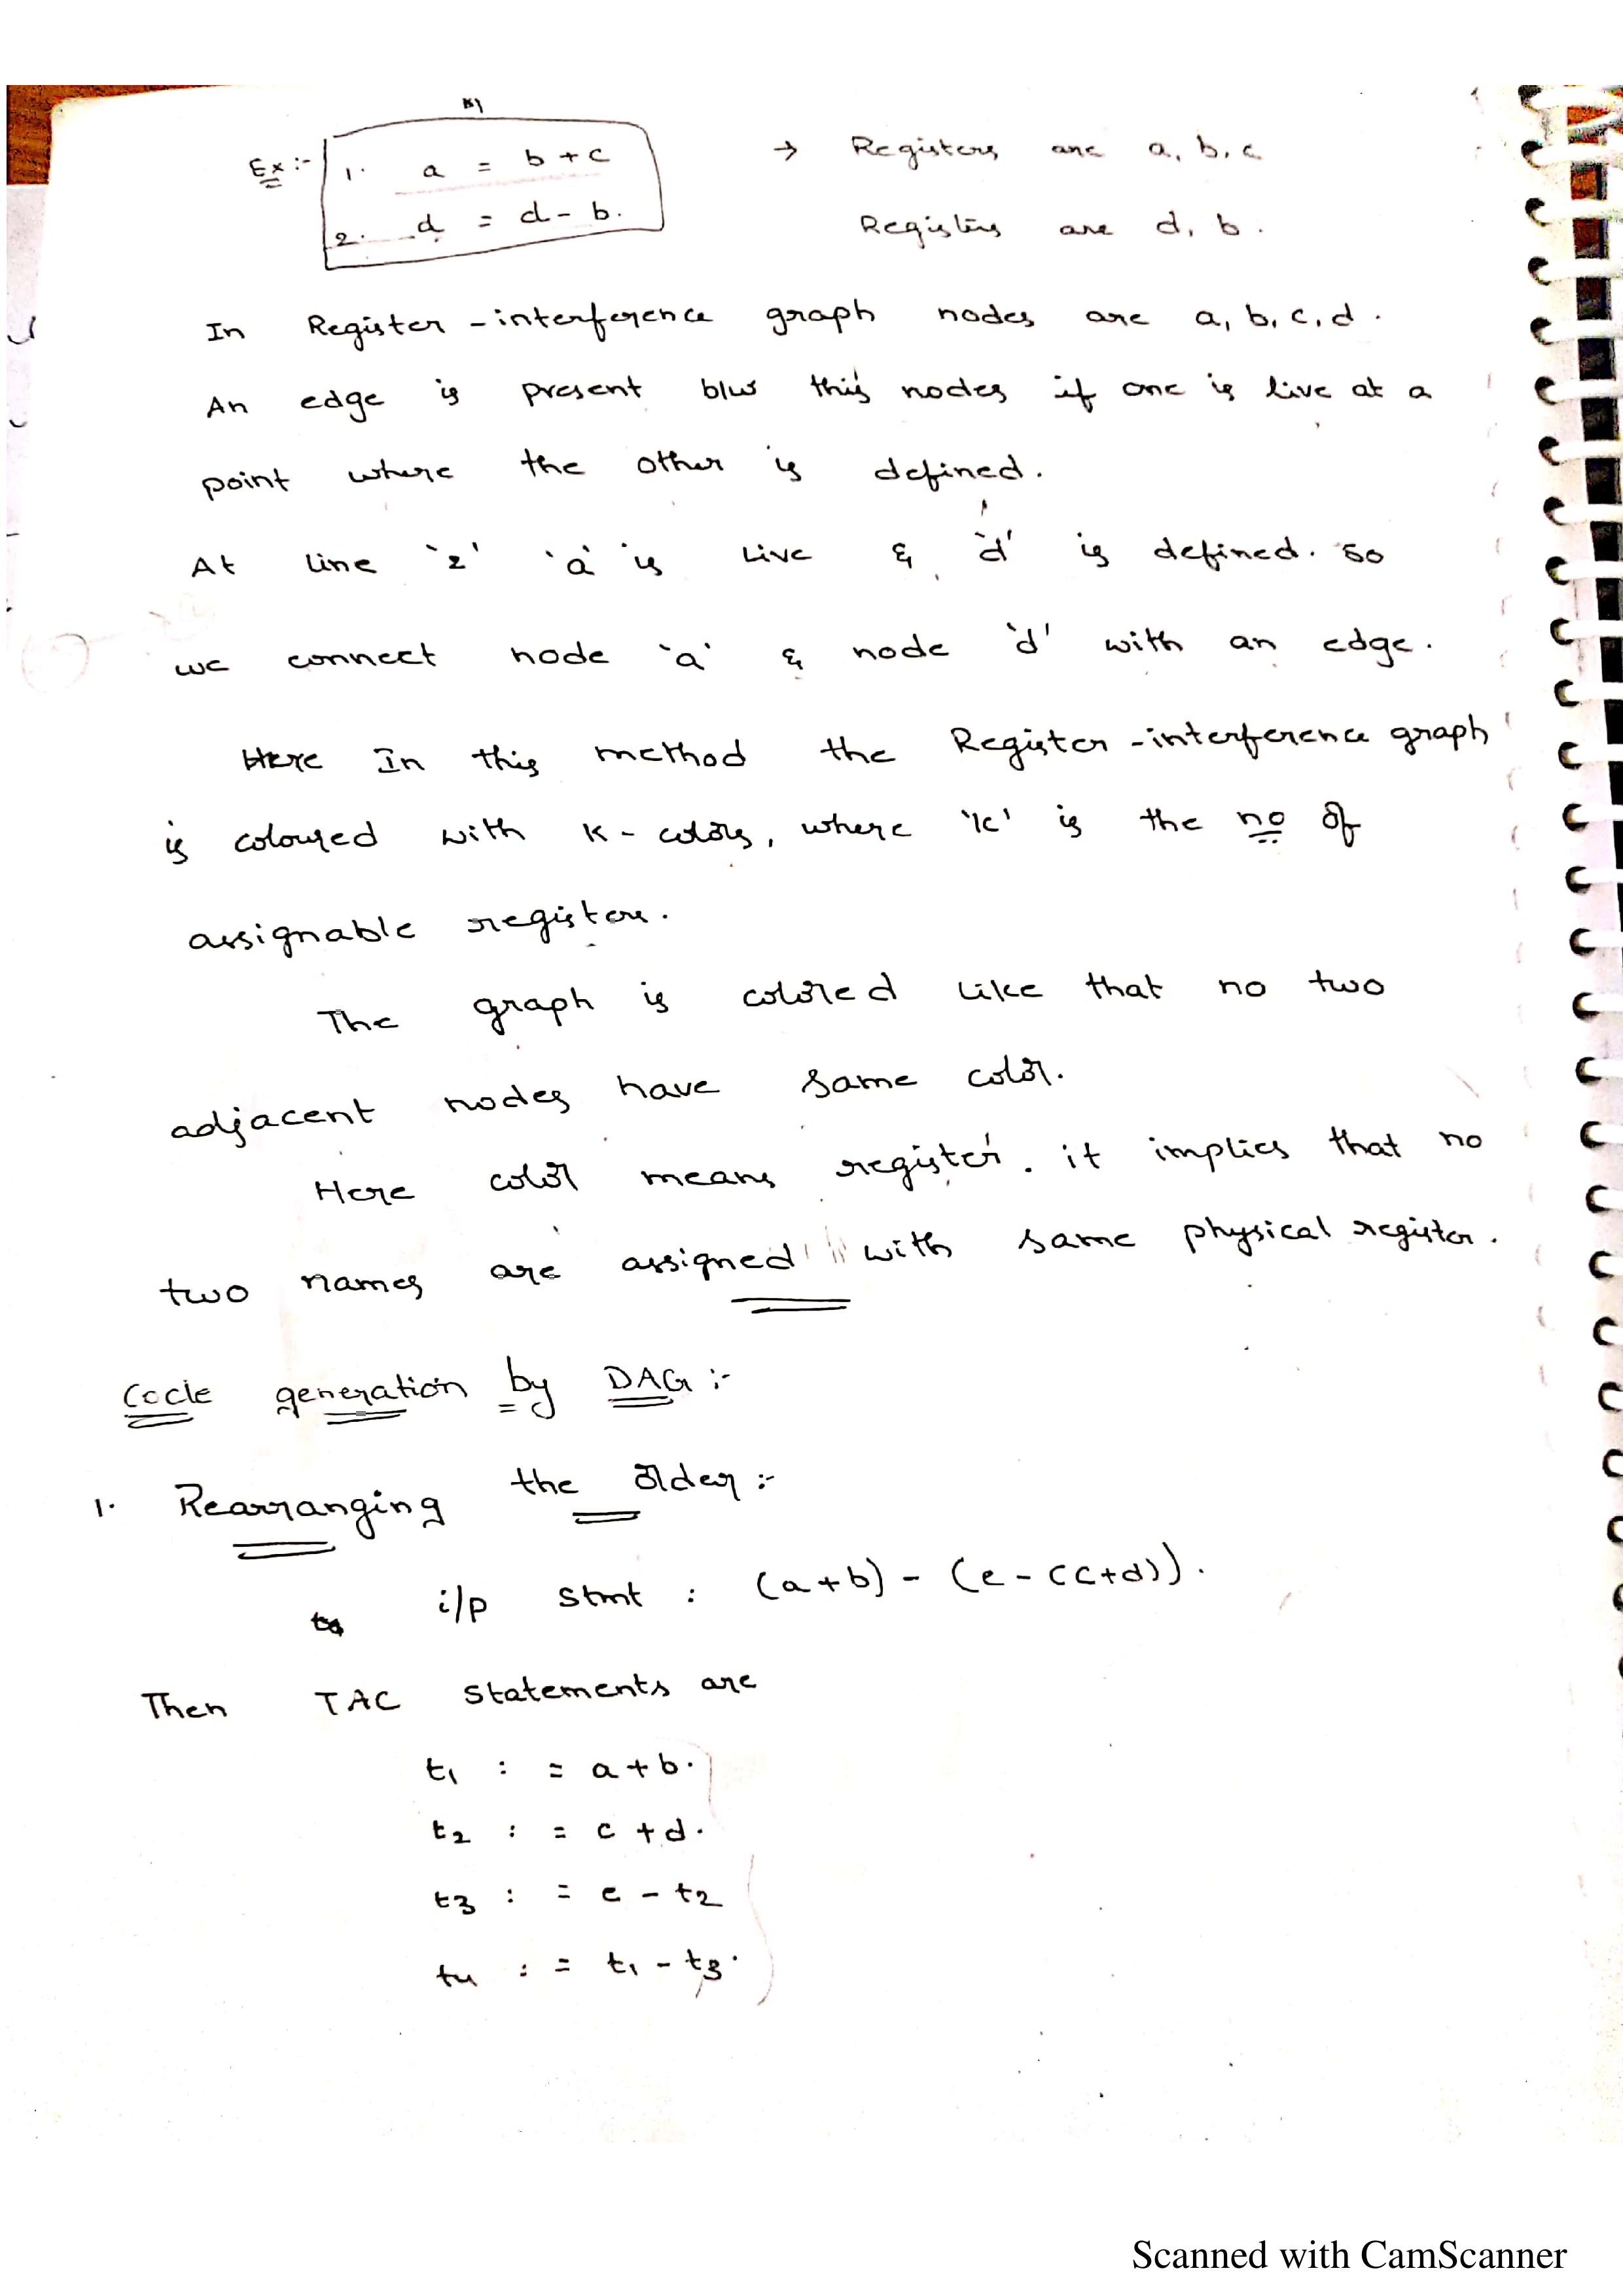 B1
Ex :- 1. a = b + c → Registers are a, b, c
2. d = d - b. Registers are d, b.
In Register - interference graph nodes are a, b, c, d.
An edge is present b/w this nodes if one is live at a
point where the other is defined.
At line '2' 'a' is Live & 'd' is defined. So
we connect node 'a' & node 'd' with an edge.
Here In this method the Register - interference graph
is coloured with K - colors, where 'K' is the no of
assignable registers.
The graph is colored like that no two
adjacent nodes have same color.
Here color means register. it implies that no
two names are assigned with same physical register.
Code generation by DAG :-
1. Rearranging the order :-
i/p stmt : (a+b) - (e - (c+d)).
Then TAC statements are
t1 : = a + b.
t2 : = c + d.
t3 : = e - t2
t4 : = t1 - t3.
Scanned with CamScanner